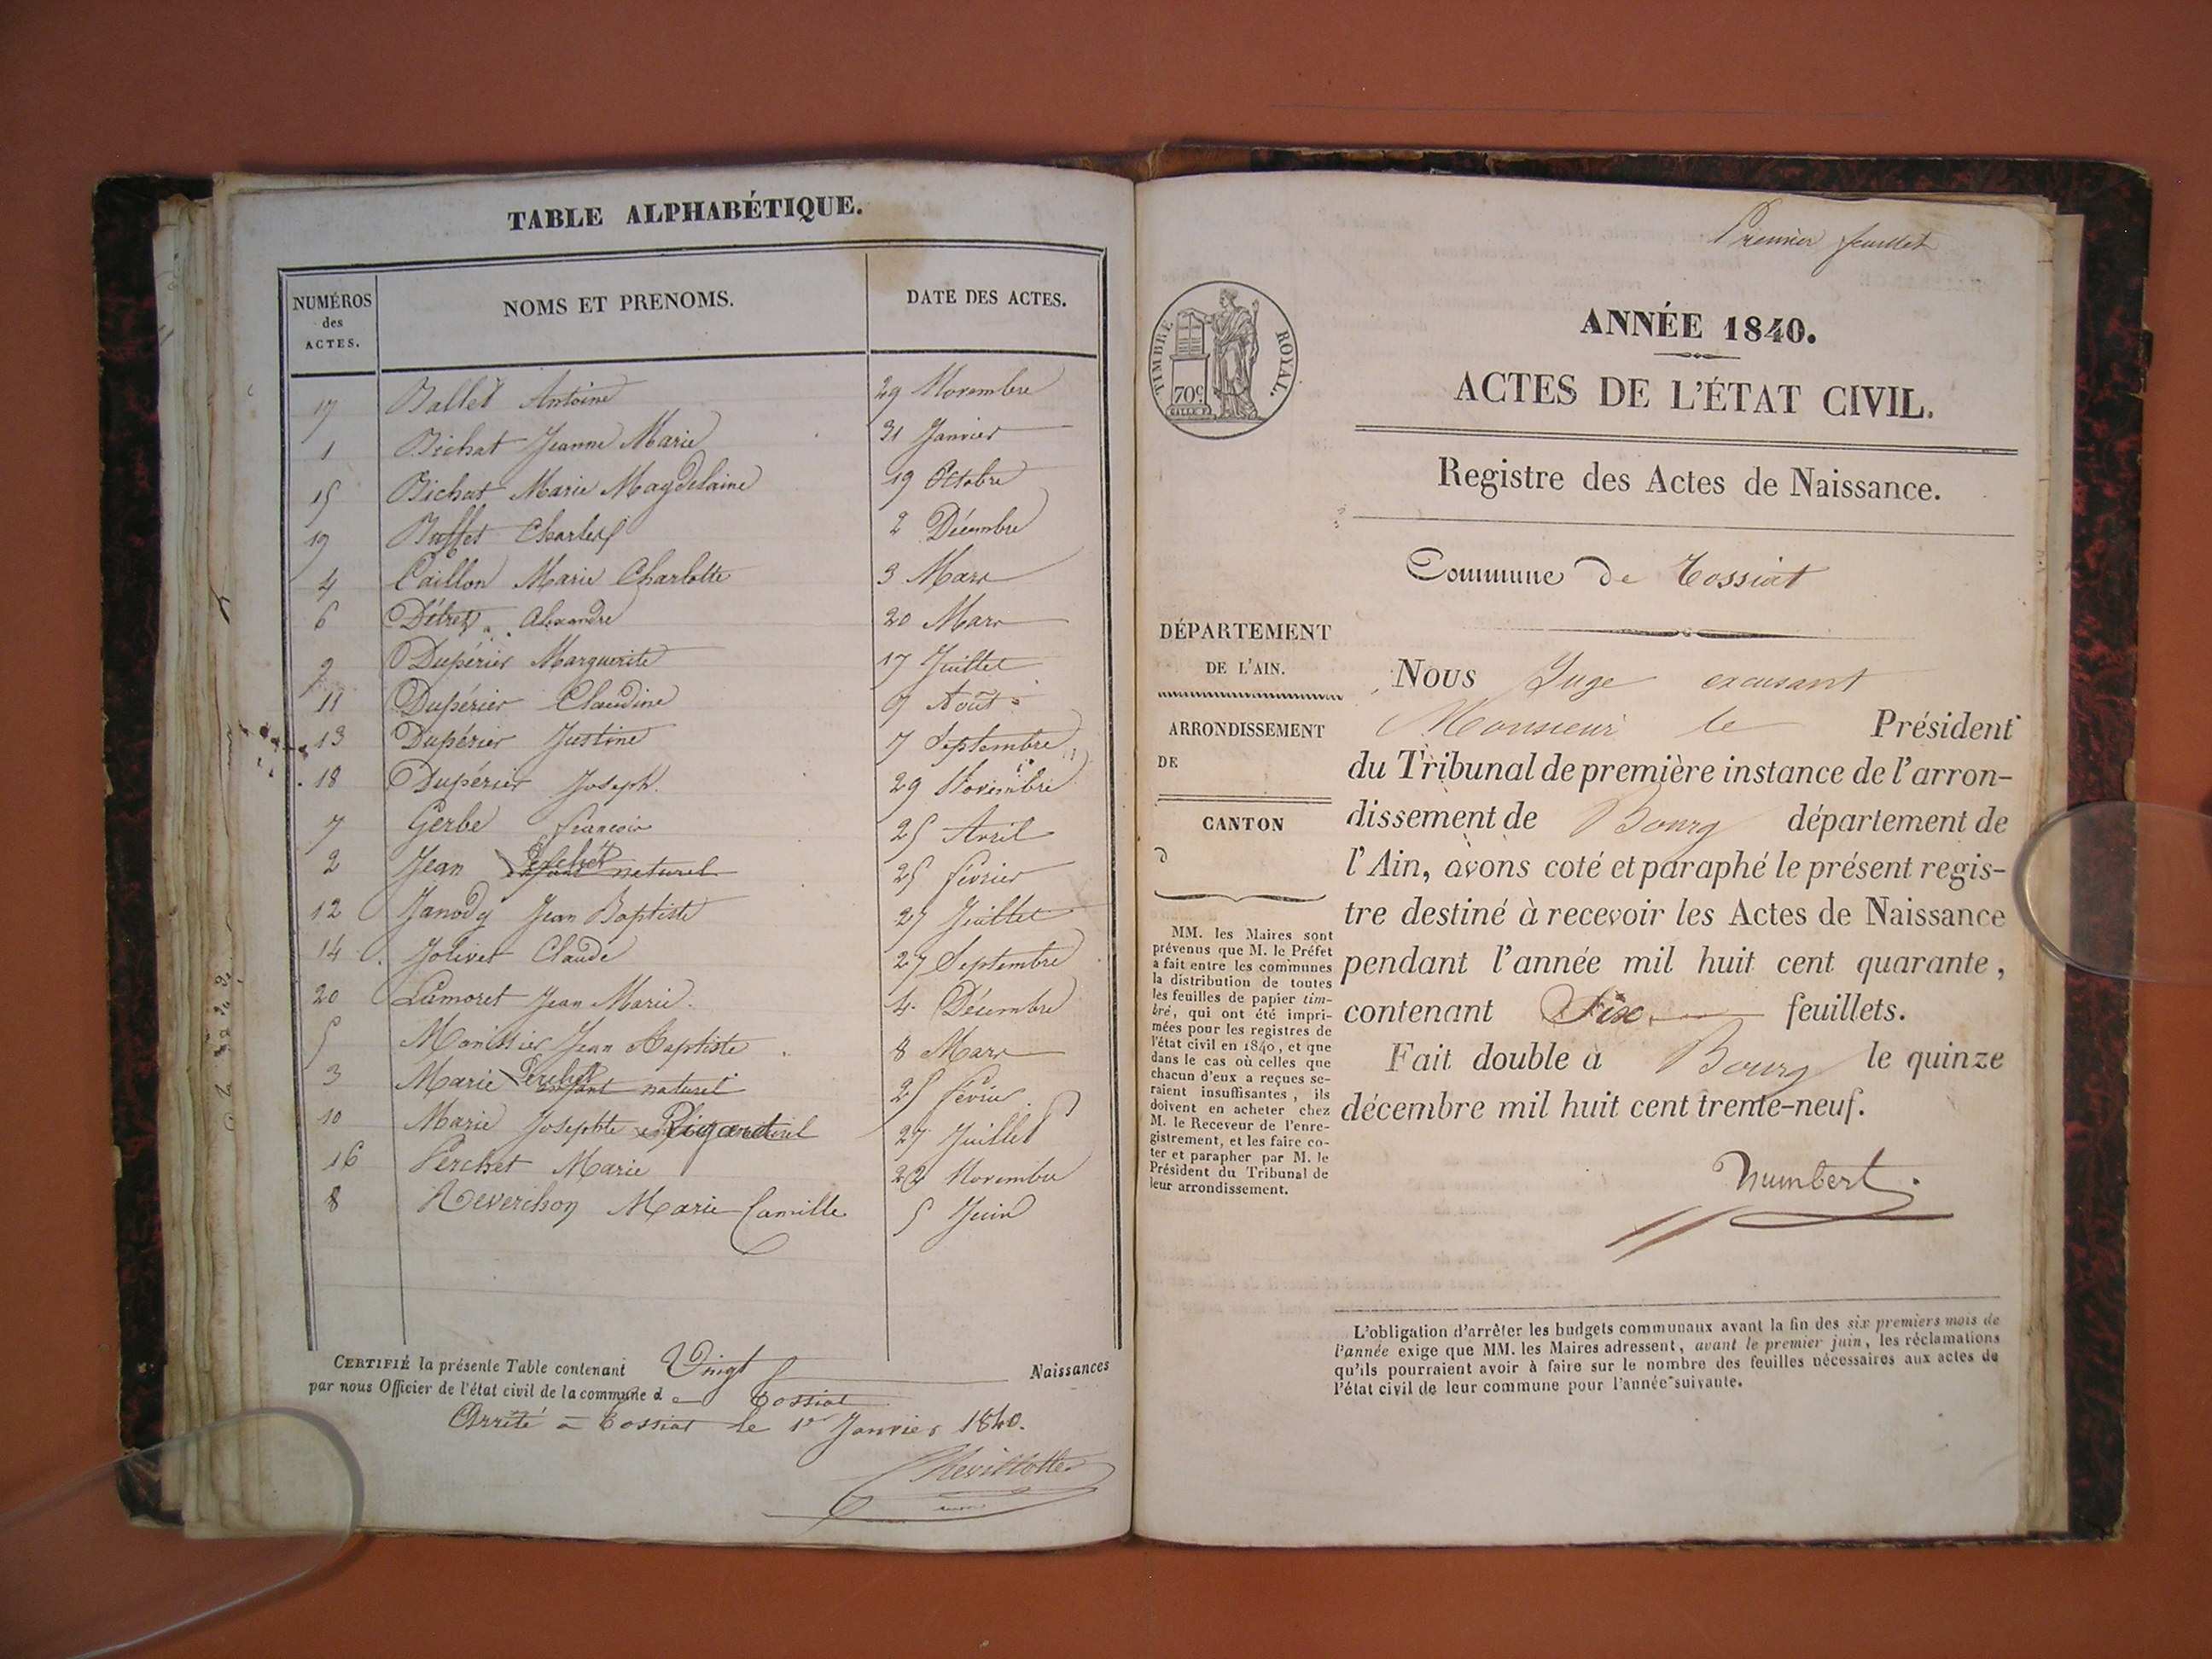 TABLE ALPHABÉTIQUE.
NUMÉROS des ACTES. NOMS ET PRENOMS. DATE DES ACTES.
17 Ballet Antoine 29 Novembre
1 Bichat Jeanne Marie 31 Janvier
15 Bichat Marie Magdelaine 19 Octobre
19 Buffet Charles 2 Décembre
4 Caillon Marie Charlotte 3 Mars
6 Détrez Alexandre 20 Mars
9 Dupérier Marguerite 17 Juillet
11 Dupérier Claudine 9 Août
13 Dupérier Justine 7 Septembre
18 Dupérier Joseph 29 Novembre
7 Gerbe françois 25 Avril
2 Jean Perchet enfant naturel 25 février
12 Janody Jean Baptiste 27 Juillet
14 Jolivet Claude 27 Septembre
20 Lamoret Jean Marie 4 Décembre
5 Monissier Jean Baptiste 8 Mars
3 Marie Perchet enfant naturel 25 février
10 Marie Josephte Rigaud 27 Juillet
16 Perchet Marie 22 Novembre
8 Reverchon Marie Camille 5 Juin
CERTIFIÉ la présente Table contenant Vingt Naissances
par nous Officier de l'état civil de la commune de Tossiat
Arrêté à Tossiat le 1er Janvier 1840.
Chevillotte
Premier feuillet
TIMBRE ROYAL.
70c
ANNÉE 1840.
ACTES DE L'ÉTAT CIVIL.
Registre des Actes de Naissance.
Commune de Tossiat
DÉPARTEMENT
DE L'AIN.
ARRONDISSEMENT
DE
CANTON
d
MM. les Maires sont
prévenus que M. le Préfet
a fait entre les communes
la distribution de toutes
les feuilles de papier tim-
bré, qui ont été impri-
mées pour les registres de
l'état civil en 1840, et que
dans le cas où celles que
chacun d'eux a reçues se-
raient insuffisantes, ils
doivent en acheter chez
M. le Receveur de l'enre-
gistrement, et les faire co-
ter et parapher par M. le
Président du Tribunal de
leur arrondissement.
Nous Juge excusant
Monsieur le Président
du Tribunal de première instance de l'arron-
dissement de Bourg département de
l'Ain, avons coté et paraphé le présent regis-
tre destiné à recevoir les Actes de Naissance
pendant l'année mil huit cent quarante,
contenant Six feuillets.
Fait double à Bourg le quinze
décembre mil huit cent trente-neuf.
humbert.
L'obligation d'arrêter les budgets communaux avant la fin des six premiers mois de
l'année exige que MM. les Maires adressent, avant le premier juin, les réclamations
qu'ils pourraient avoir à faire sur le nombre des feuilles nécessaires aux actes de
l'état civil de leur commune pour l'année suivante.